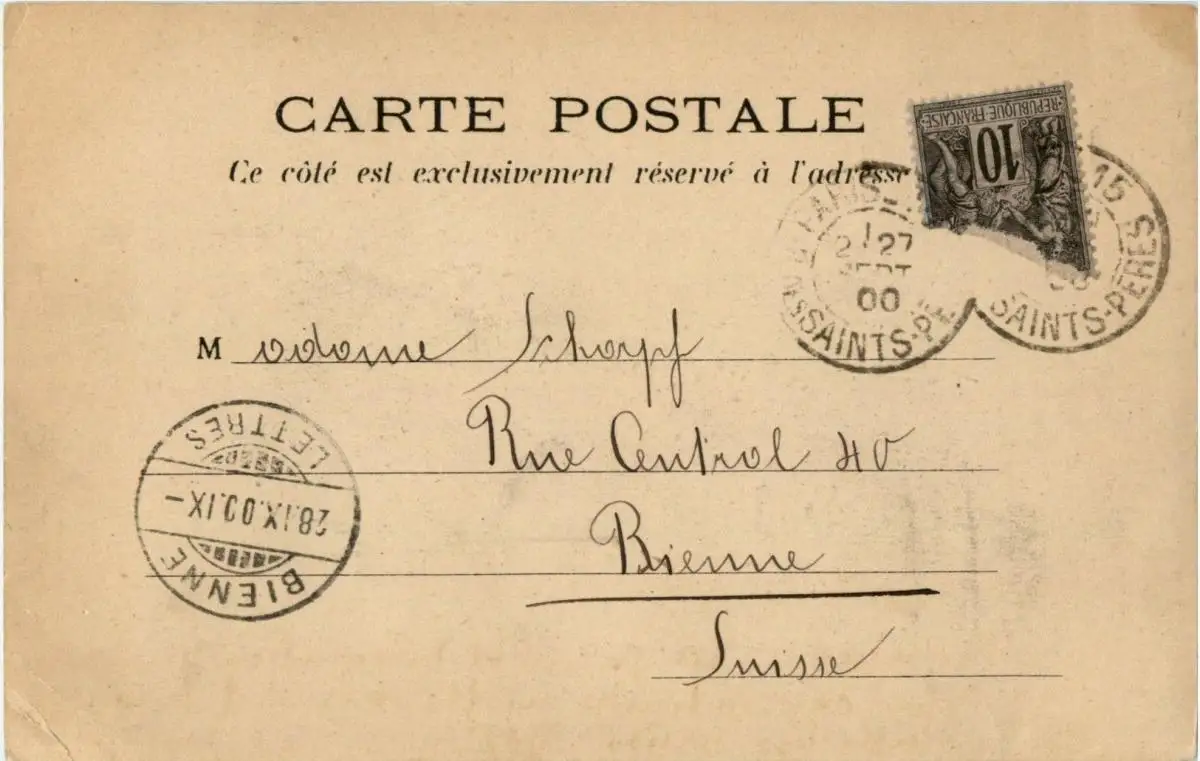 CARTE POSTALE
Ce côté est exclusivement réservé à l'adresse
RÉPUBLIQUE FRANÇAISE
10
PARIS
27
SEPT
00
SAINTS-PE
15
SAINTS-PÈRES
Madame Schorpf
Rue Central 40
Bienne
Suisse
LETTRES
28.IX.00.IX-
BIENNE